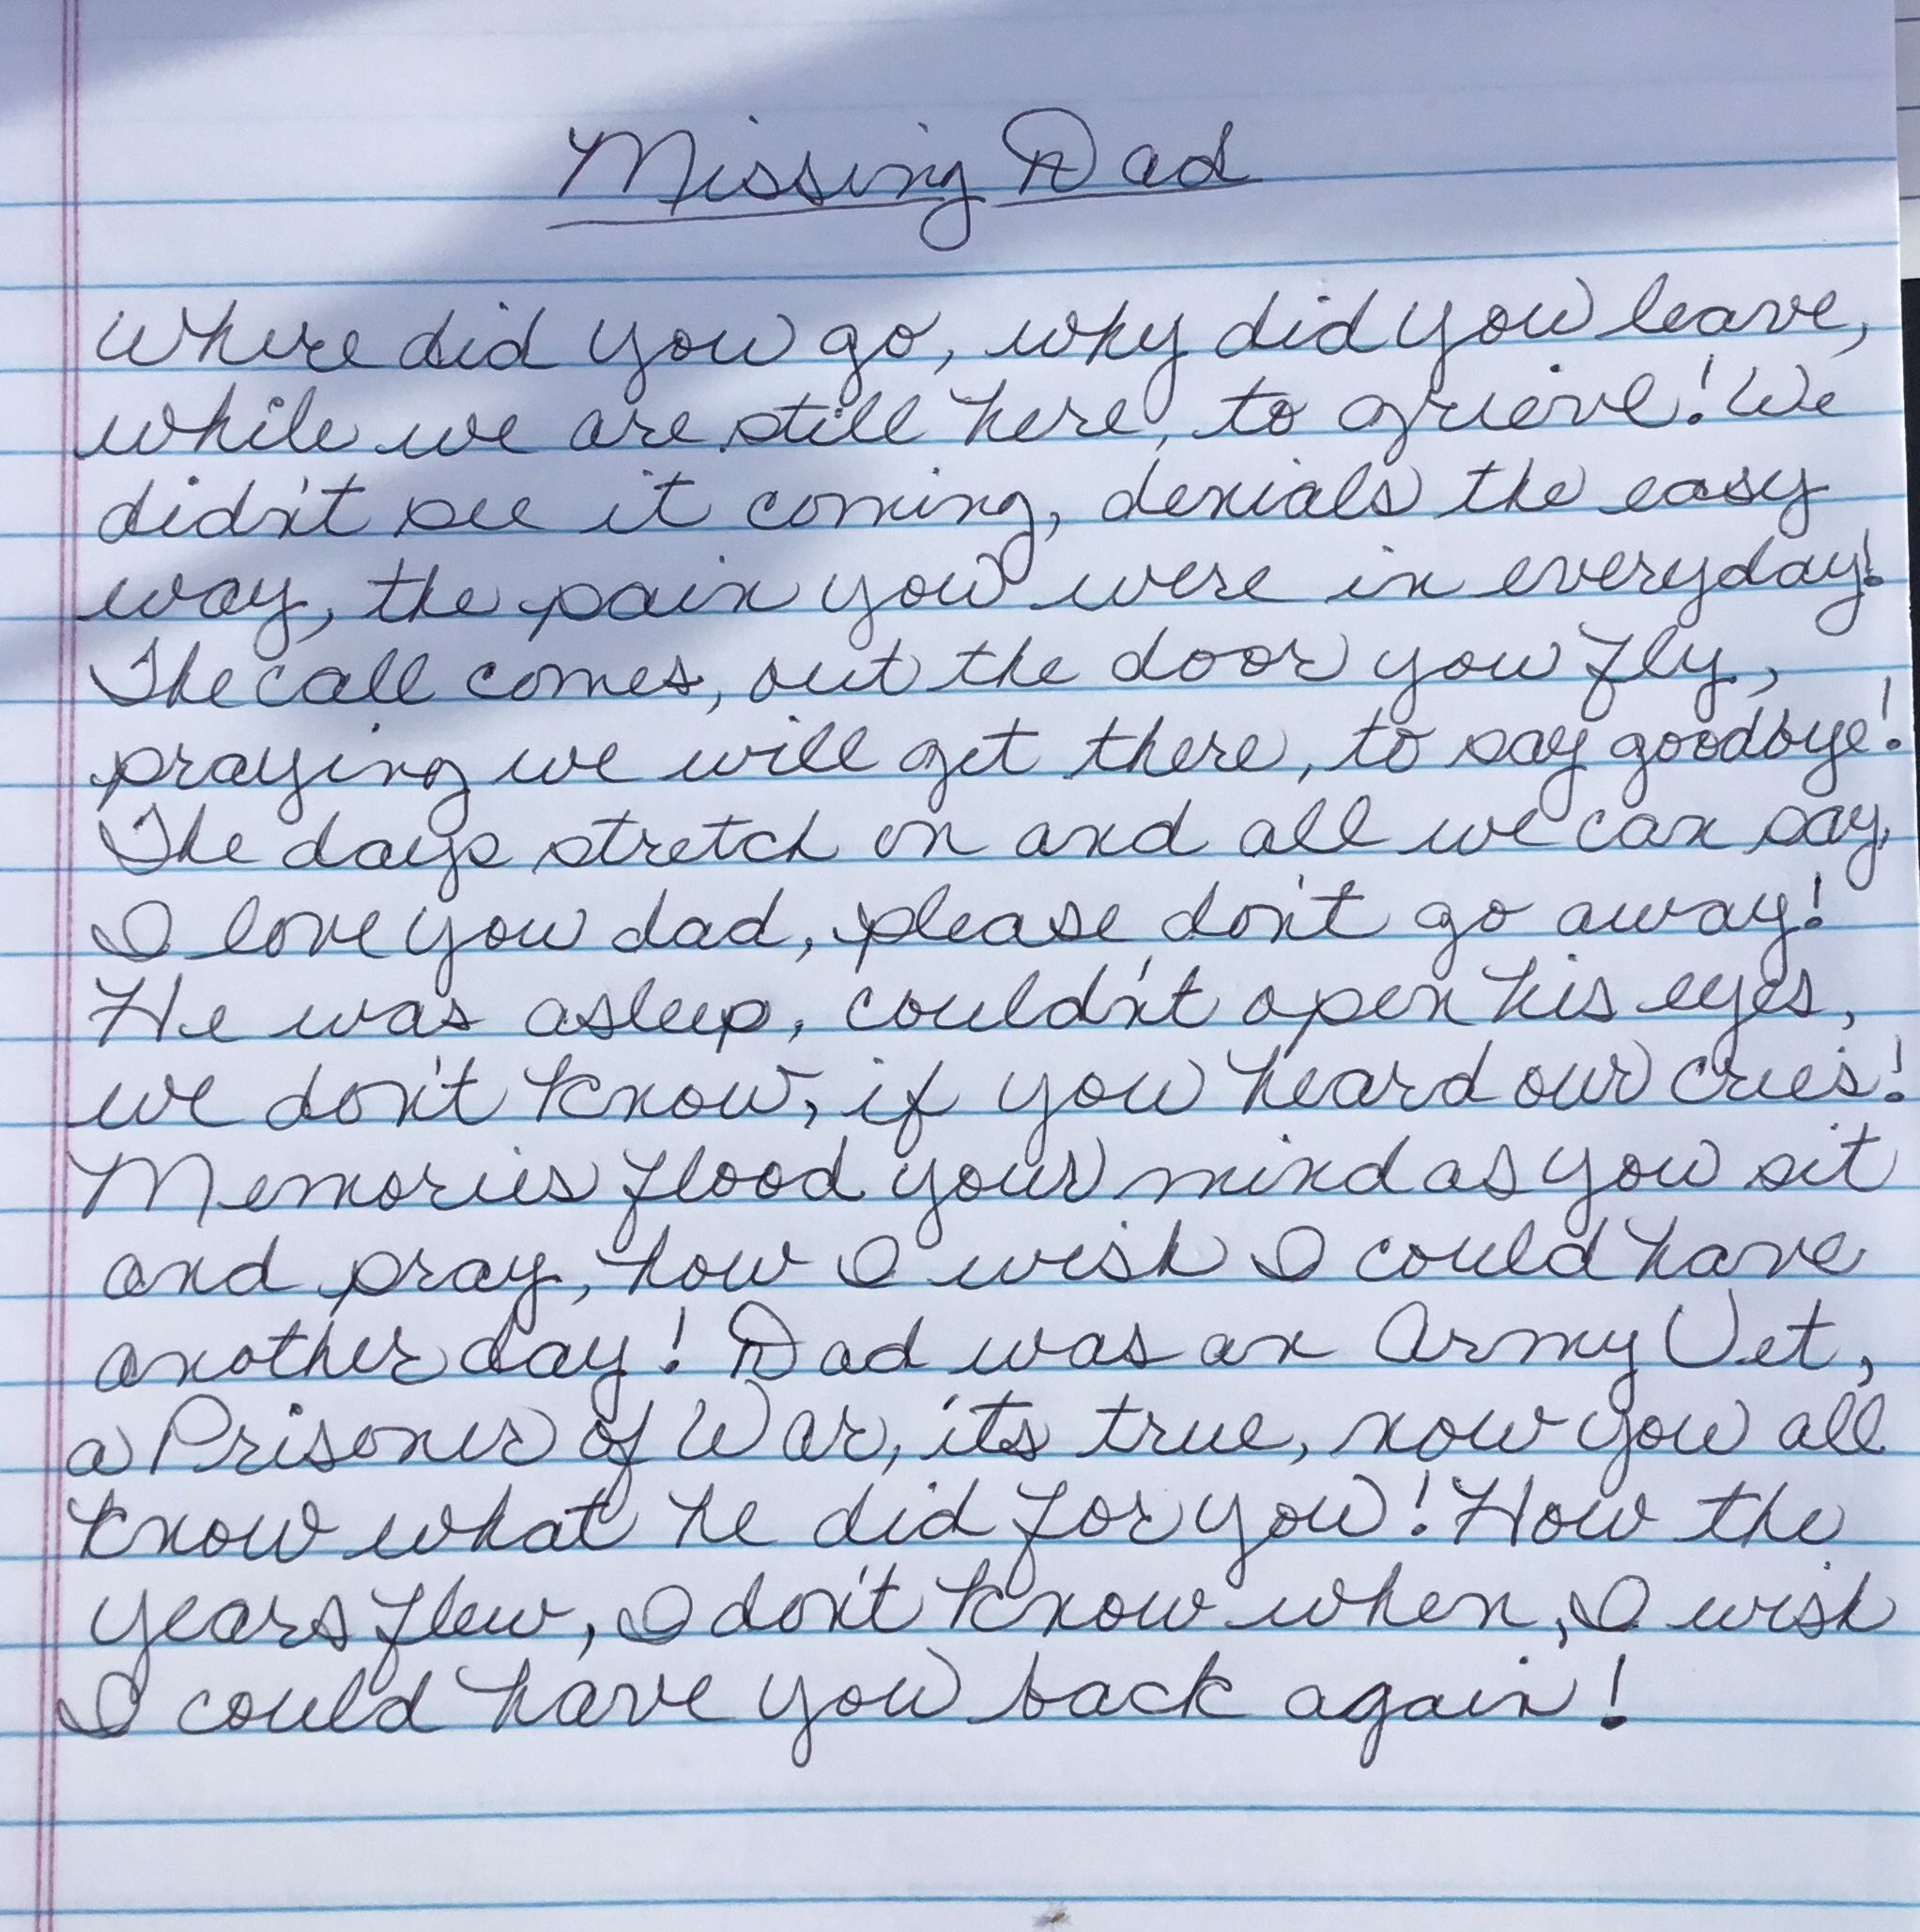 Missing Dad
Where did you go, why did you leave,
while we are still here, to grieve! We
didn't see it coming, denials the easy
way, the pain you were in everyday!
The call comes, out the door you fly,
praying we will get there, to say goodbye!
The days stretch on and all we can say,
I love you dad, please don't go away!
He was asleep, couldn't open his eyes,
we don't know, if you heard our cries!
Memories flood your mind as you sit
and pray, how I wish I could have
another day! Dad was an Army Vet,
a Prisoner of War, its true, now you all
know what he did for you! How the
years flew, I don't know when, I wish
I could have you back again!